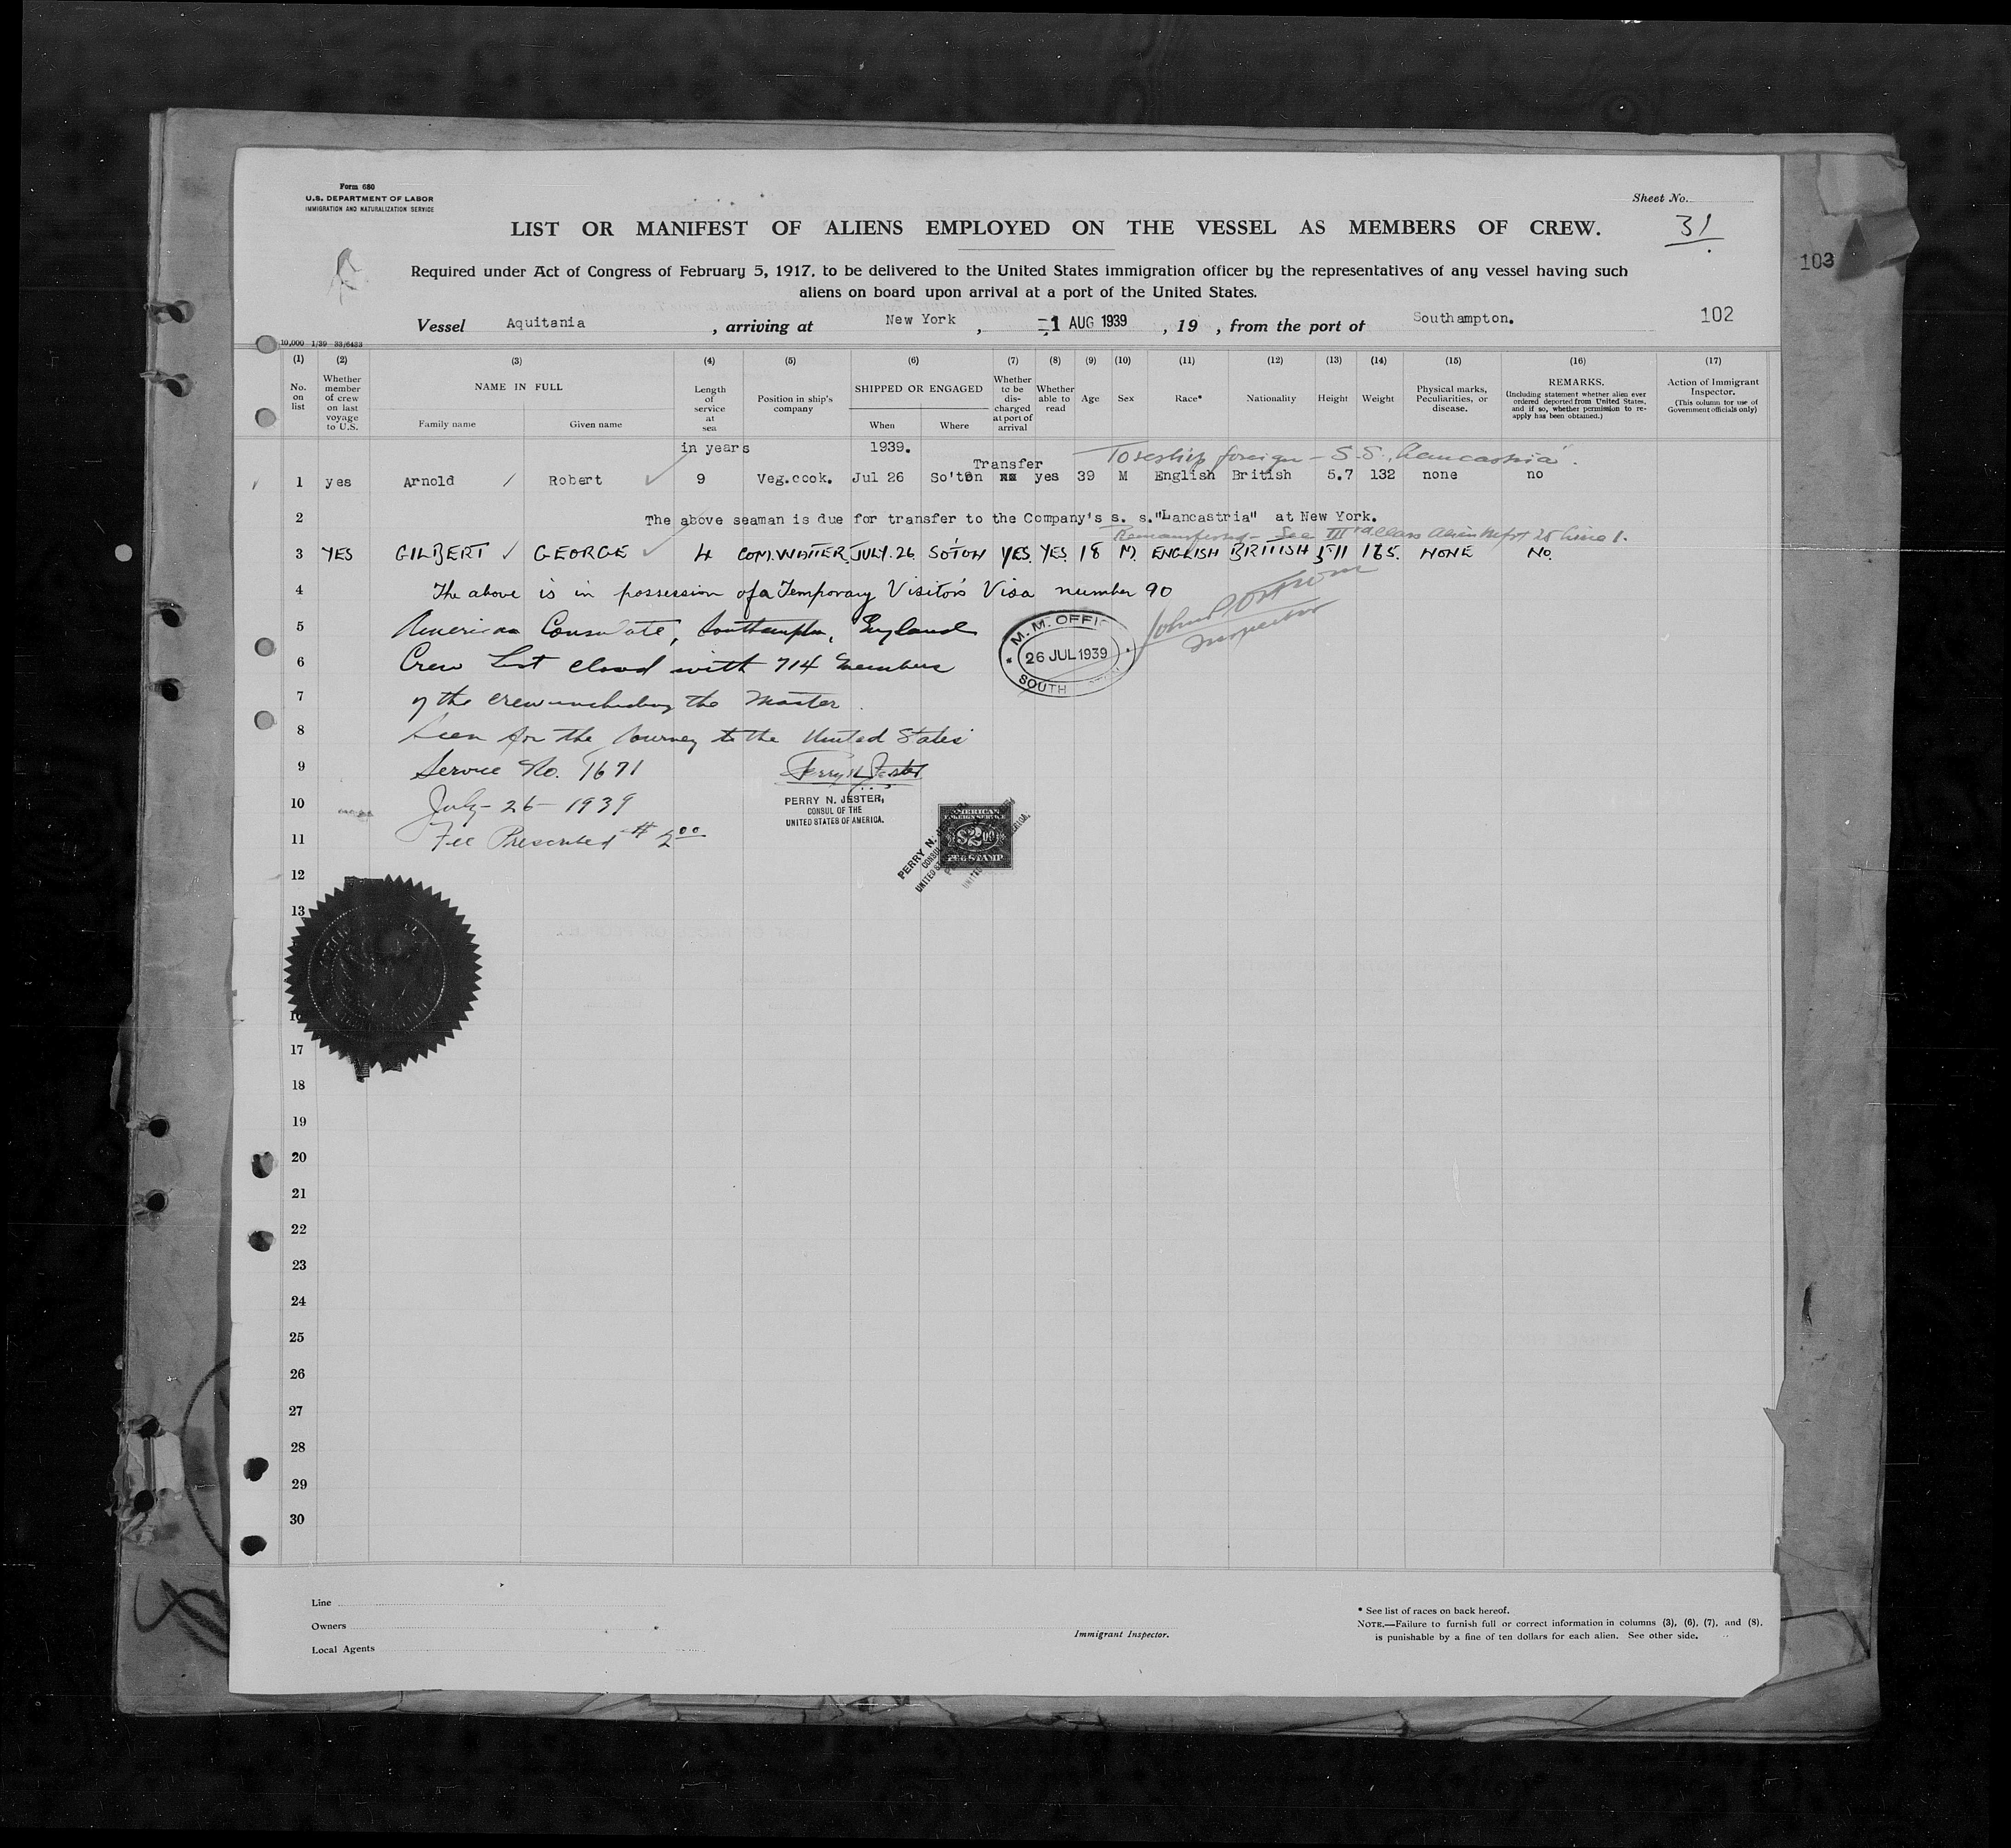 Form 680
U.S. DEPARTMENT OF LABOR
IMMIGRATION AND NATURALIZATION SERVICE
Sheet No.
31
103
LIST OR MANIFEST OF ALIENS EMPLOYED ON THE VESSEL AS MEMBERS OF CREW.
Required under Act of Congress of February 5, 1917, to be delivered to the United States immigration officer by the representatives of any vessel having such
aliens on board upon arrival at a port of the United States.
Vessel Aquitania , arriving at New York , -1 AUG 1939 , 19 , from the port of Southampton. 102
10,000 1/39 33/6433
(1) (2) (3) (4) (5) (6) (7) (8) (9) (10) (11) (12) (13) (14) (15) (16) (17)
No. on list
Whether member of crew on last voyage to U.S.
NAME IN FULL
Family name Given name
Length of service at sea
Position in ship's company
SHIPPED OR ENGAGED
When Where
Whether to be discharged at port of arrival
Whether able to read
Age
Sex
Race*
Nationality
Height
Weight
Physical marks, Peculiarities, or disease.
REMARKS.
(Including statement whether alien ever ordered deported from United States, and if so, whether permission to re-apply has been obtained.)
Action of Immigrant Inspector.
(This column for use of Government officials only)
in years 1939. To reship foreign - S.S. "Lancastria".
Transfer
1 yes Arnold / Robert 9 Veg.cook. Jul 26 So'ton yes 39 M English British 5.7 132 none no
2 The above seaman is due for transfer to the Company's s. s."Lancastria" at New York.
See IIIrd Class Alien Line 1.
3 YES GILBERT GEORGE 4 COM.WAITER JULY.26 SO'TON YES YES 18 M ENGLISH BRITISH 5'11 165. NONE NO.
4 The above is in possession of a Temporary Visitor's Visa number 90
5 American Consulate, Southampton, England
6 Crew List closed with 714 members
7 of the crew including the Master.
8 Seen for the Journey to the United States
9 Service No. 1671
10 July - 26 - 1939
11 Fee Prescribed $ 2.00
Inspector
M. M. OFFIC
26 JUL 1939
SOUTH
Perry N. Jester
PERRY N. JESTER,
CONSUL OF THE
UNITED STATES OF AMERICA.
AMERICAN
FOREIGN SERVICE
$2.00
FEE STAMP
PERRY N.
CONSUL
UNITED
12
13
16
17
18
19
20
21
22
23
24
25
26
27
28
29
30
Line
Owners
Local Agents
Immigrant Inspector.
* See list of races on back hereof.
NOTE.—Failure to furnish full or correct information in columns (3), (6), (7), and (8),
is punishable by a fine of ten dollars for each alien. See other side.